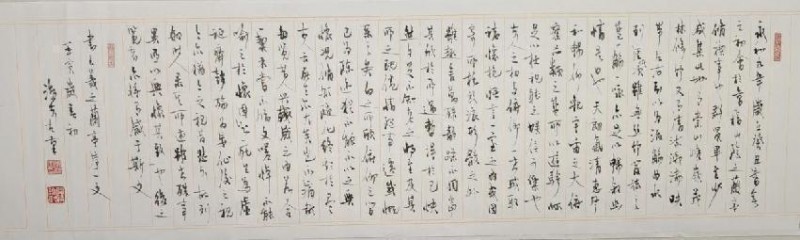 永和九年歲在癸丑暮春
之初會于會稽山陰之蘭亭
脩禊事也群賢畢至少長
咸集此地有崇山峻嶺茂
林脩竹又有清流激湍映
帶左右引以為流觴曲水
列坐其次雖無絲竹管弦之
盛一觴一詠亦足以暢敘幽
情是日也天朗氣清惠風
和暢仰觀宇宙之大俯
察品類之盛所以遊目騁懷
足以極視聽之娛信可樂也
夫人之相與俯仰一世或取
諸懷抱悟言一室之內或因
寄所託放浪形骸之外
雖趣舍萬殊靜躁不同當
其欣於所遇暫得於己快
然自足不知老之將至及其
所之既倦情隨事遷感慨
係之矣向之所欣俯仰之間
已為陳迹猶不能不以之興
懷況脩短隨化終期於盡
古人云死生亦大矣豈不痛哉
每覽昔人興感之由若合
一契未嘗不臨文嗟悼不能
喻之於懷固知一死生為虛
誕齊彭殤為妄作後之視
今亦猶今之視昔悲夫故列
敘時人錄其所述雖世殊事
異所以興懷其致一也後之
覽者亦將有感於斯文
書王羲之蘭亭序一文
壬寅歲春初